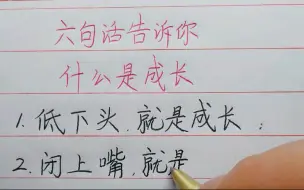 六句话告诉你
什么是成长
1. 低下头,就是成长;
2. 闭上嘴,就是